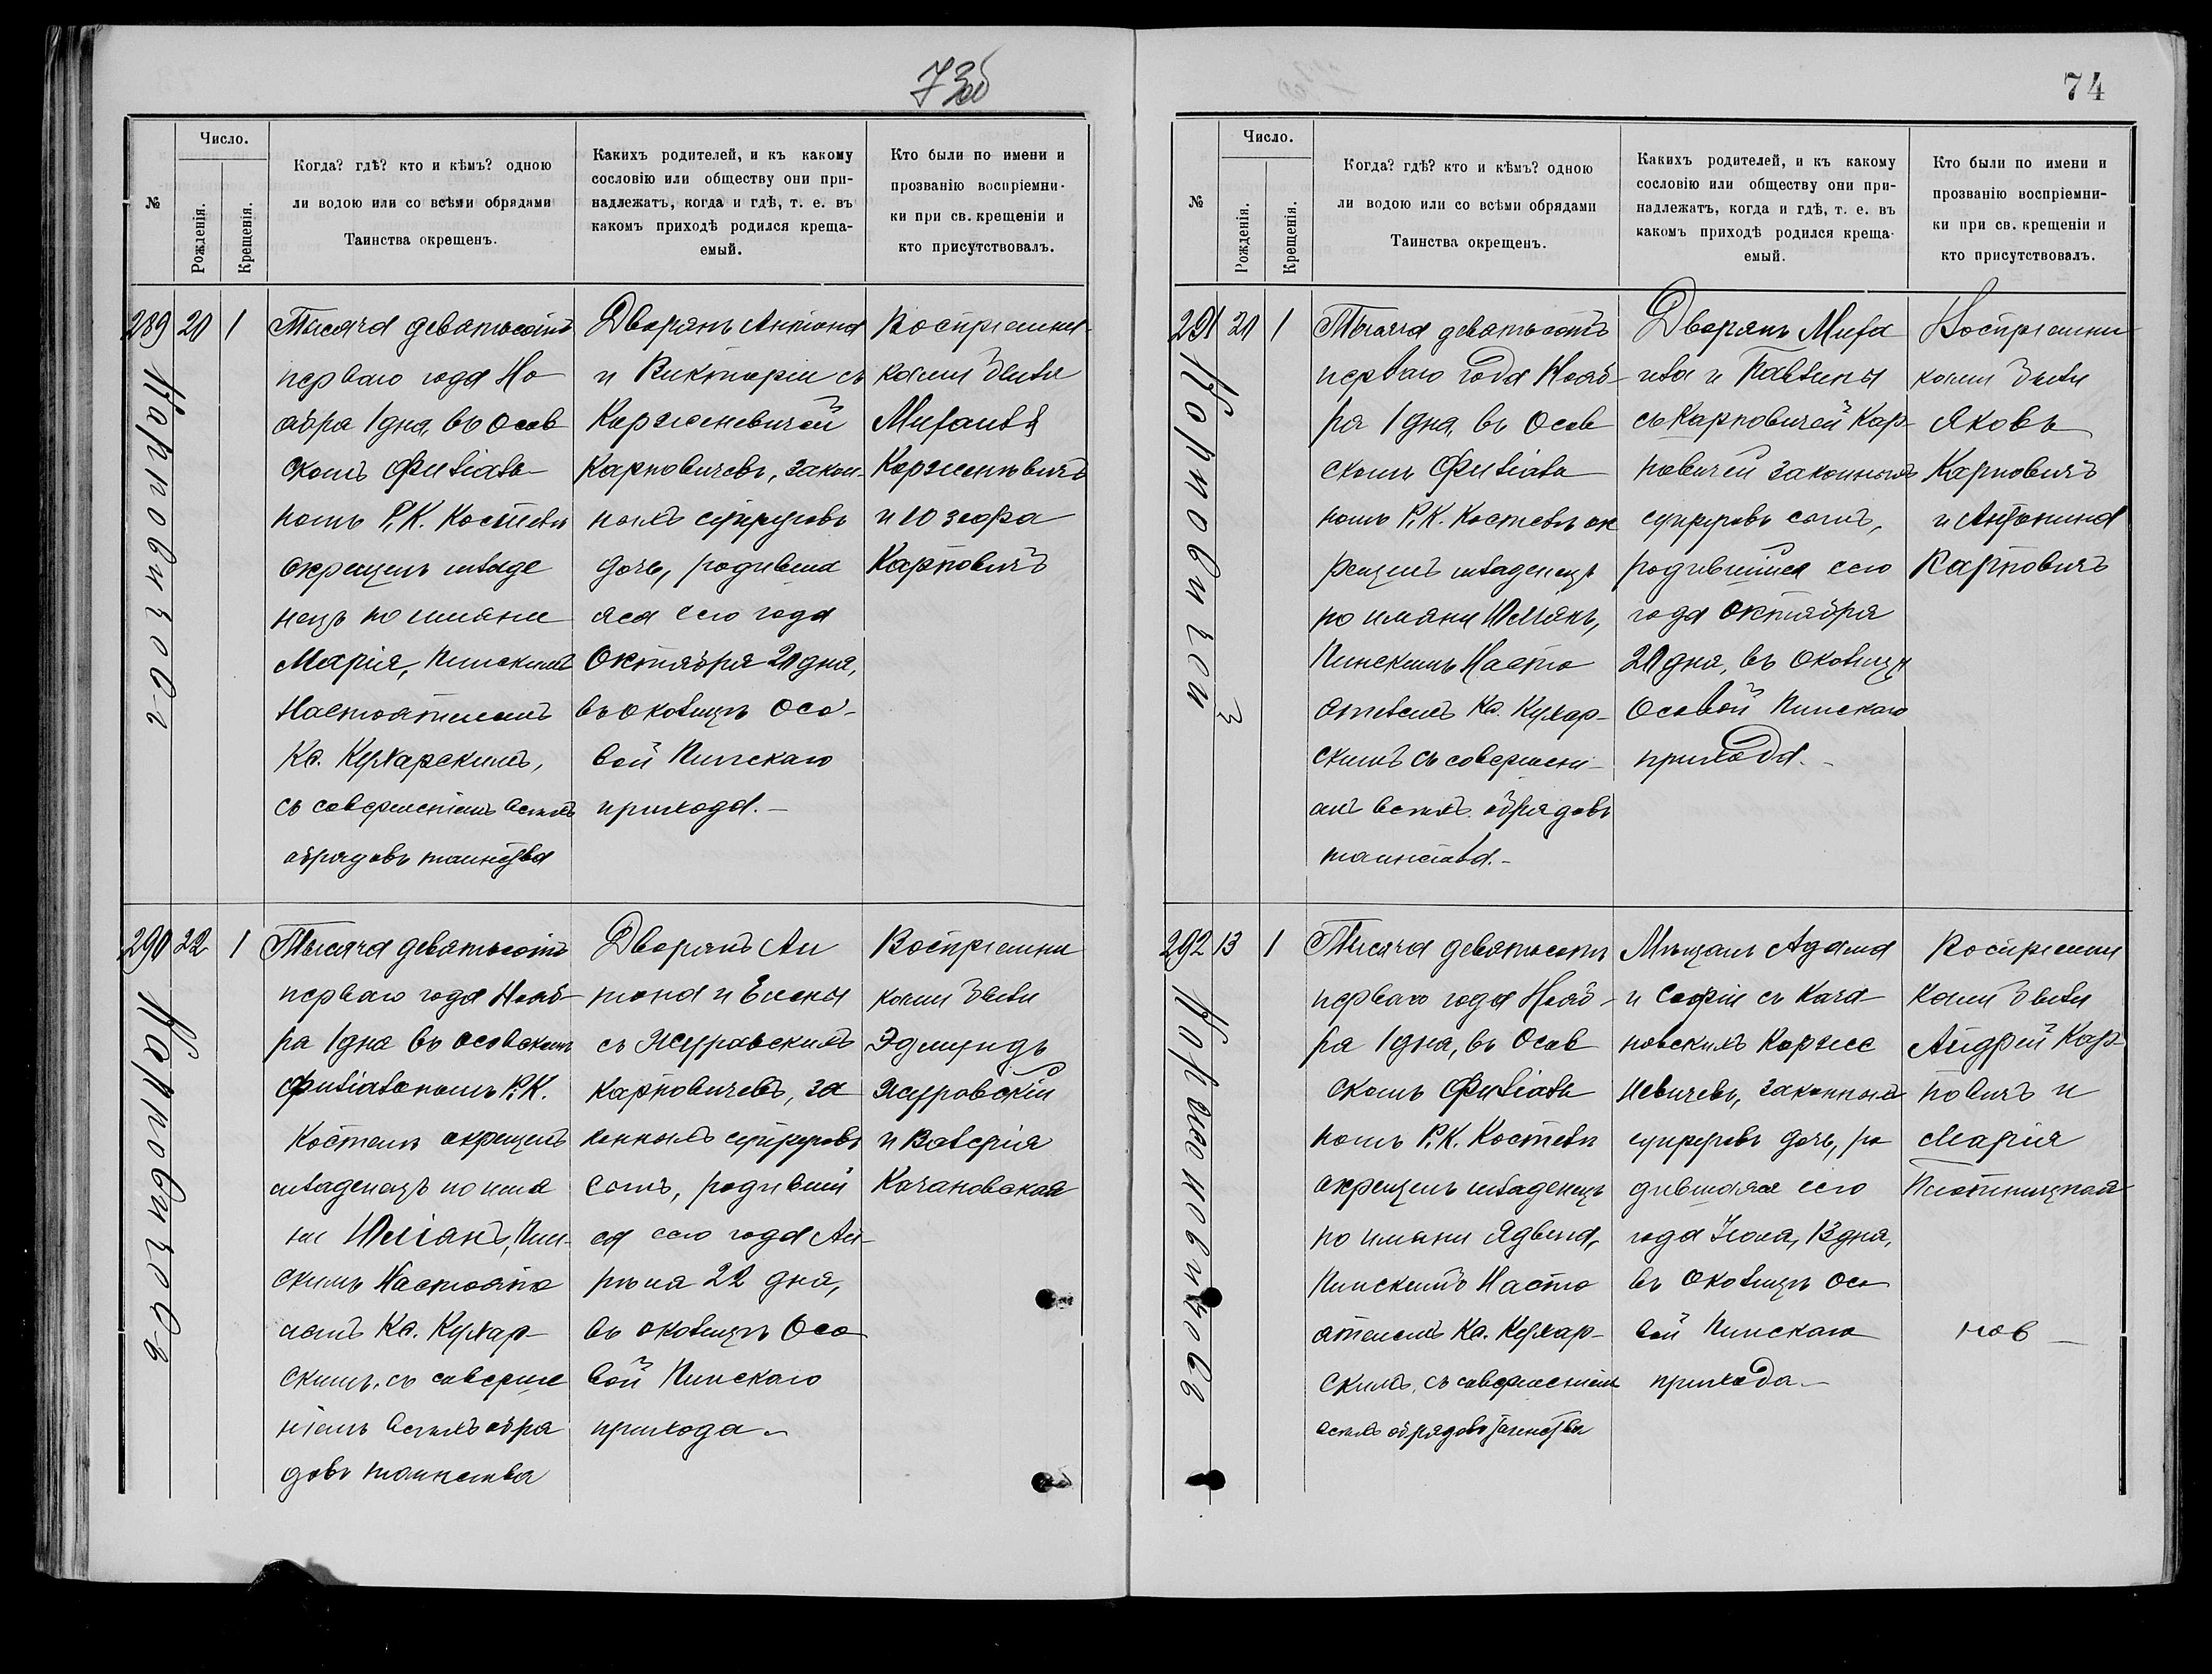 73об
№
Число.
Рожденія.
Крещенія.
Когда? гдѣ? кто и кѣмъ? одною
ли водою или со всѣми обрядами
Таинства окрещенъ.
Какихъ родителей, и къ какому
сословію или обществу они при-
надлежатъ, когда и гдѣ, т. е. въ
какомъ приходѣ родился креща-
емый.
Кто были по имени и
прозванію воспріемни-
ки при св. крещеніи и
кто присутствовалъ.
289
20
1
Тысяча девятьсотъ
перваго года Но
ября 1 дня, въ Осов
скомъ Филіаль
номъ Р.К. Костелѣ
окрещенъ младе
нецъ по имяни
Марія, Пинскимъ
Настоятелемъ
Кс. Кухарскимъ,
съ совершеніемъ всѣхъ
обрядовъ таинства
Дворянъ Антона
и Викторіи съ
Корженевичей
Карповичевъ, закон-
ныхъ супруговъ
дочь, родивша
яся сего года
Октября 20 дня,
въ околицѣ Осо-
вой Пинскаго
прихода.-
Воспріемни-
ками были
Михаилъ
Корженевичъ
и Юзефа
Карповичъ
290
22
1
Карповичевъ
Тысяча девятьсотъ
перваго года Нояб-
ря 1 дня въ Осовскомъ
Филіальномъ Р.К.
Костелѣ окрещенъ
младенецъ по имя
ни Юліанъ, Пин-
скимъ Настояте
лемъ Кс. Кухар-
скимъ, съ соверше
ніемъ всѣхъ обря
довъ таинства
Дворянъ Ан
тона и Елены
съ Журавскихъ
Карповичевъ, за
конныхъ супруговъ
сынъ, родивший
ся сего года Ап-
рѣля 22 дня,
въ околицѣ Осо
вой Пинскаго
прихода.-
Воспріемни
ками были
Эдмундъ
Журавскій
и Валерія
Качановская
74
№
Число.
Рожденія.
Крещенія.
Когда? гдѣ? кто и кѣмъ? одною
ли водою или со всѣми обрядами
Таинства окрещенъ.
Какихъ родителей, и къ какому
сословію или обществу они при-
надлежатъ, когда и гдѣ, т. е. въ
какомъ приходѣ родился креща-
емый.
Кто были по имени и
прозванію воспріемни-
ки при св. крещеніи и
кто присутствовалъ.
291
20
1
Тысяча девятьсотъ
перваго года Нояб-
ря 1 дня, въ Осов
скомъ Филіаль
номъ Р.К. Костелѣ ок
рещенъ младенецъ
по имяни Юльянъ,
Пинскимъ Насто
ятелемъ Кс. Кухар-
скимъ съ совершені-
емъ всѣхъ обрядовъ
таинства.-
Дворянъ Миха
ила и Павлины
съ Карповичей Кар-
повичей законныхъ
супруговъ сынъ,
родившийся сего
года Октября
20 дня, въ околицѣ
Осовой Пинскаго
прихода.-
Воспріемни
ками были
Яковъ
Карповичъ
и Антонина
Карповичъ
292
13
1
Корженевичевъ
Тысяча девятьсотъ
перваго года Нояб-
ря 1 дня, въ Осов
скомъ Филіаль
номъ Р.К. Костелѣ
окрещенъ младенецъ
по имяни Ядвига,
Пинскимъ Насто
ятелемъ Кс. Кухар-
скимъ, съ совершеніемъ
всѣхъ обрядовъ таинства
Мѣщанъ Адама
и Софіи съ Кача
новскихъ Корже
невичевъ, законныхъ
супруговъ дочь, ро
дившаяся сего
года Іюля, 13 дня,
въ околицѣ Осо
вой Пинскаго
прихода.-
Воспріемни
ками были
Андрей Кар-
повичъ и
Марія
Плотницкая